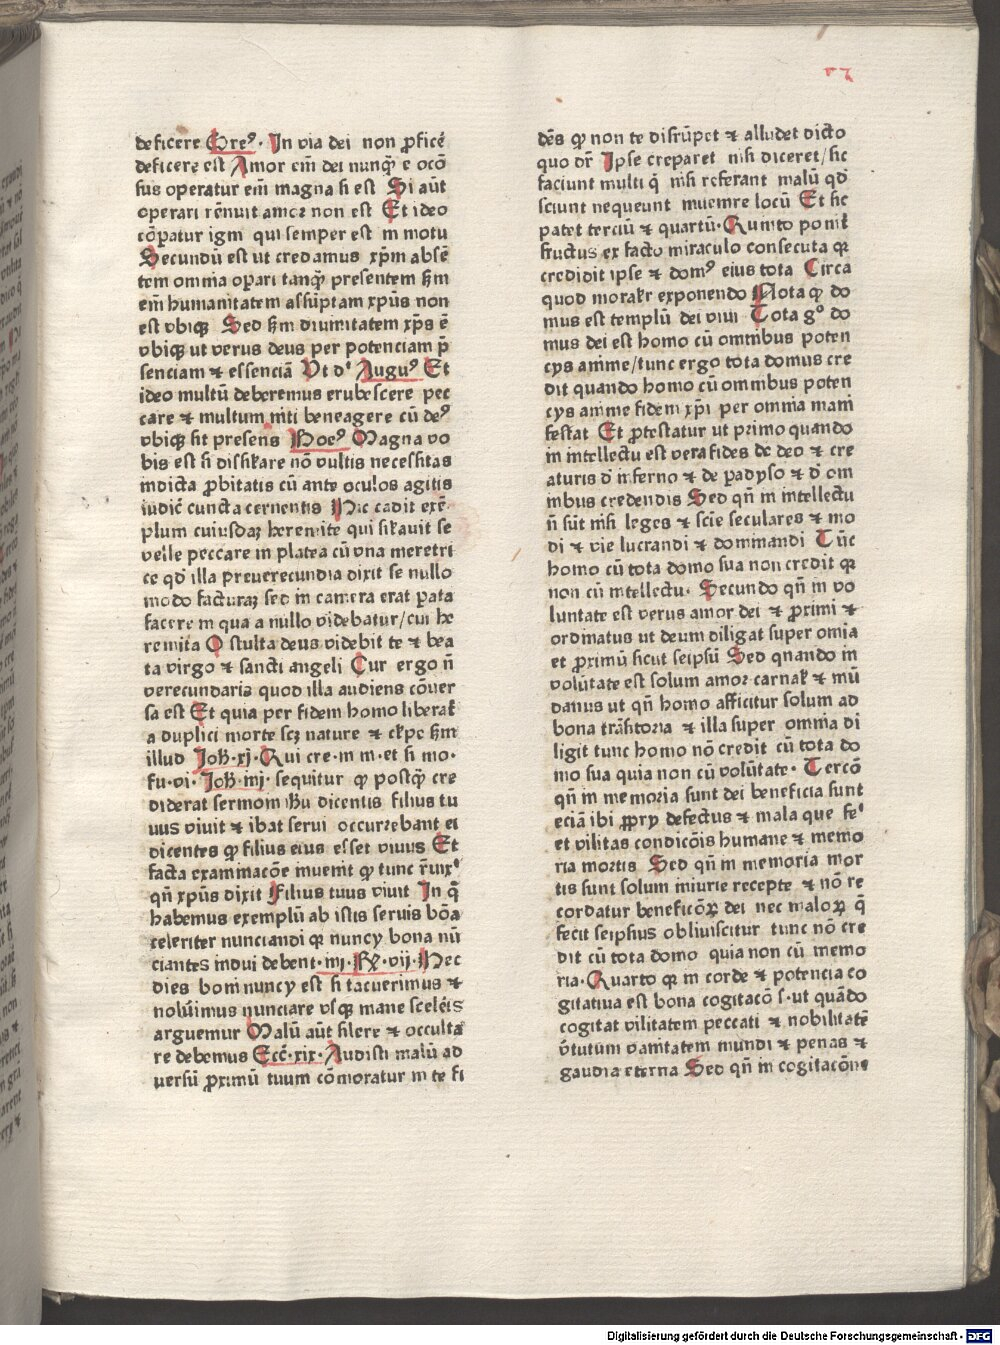 deficere Gre⁹· In via dei non ꝓficē
deficere est Amor em̄ dei nunq̄ e ocō
sus operatur em̄ magna si est Si aūt
operari rēnuit amor non est Et ideo
cōparatur igni qui semper est in motu
Secundū est ut credamus xp̄m absē
tem omnia oꝑari tanq̄ presentem ẜm
em̄ humanitatem assūptam xpūs non
est vbiqꝫ Sed ẜm diuinitatem xp̄s ē
vbiqꝫ ut verus deus per potenciam p̄
senciam ⁊ essenciā Vt d' Augu⁹ Et
ideo multū deberemus erubescere pec
care ⁊ multum niti beneagere cū de⁹
vbiqꝫ sit presens Boec⁹ Magna vo
bis est si dissil̄are nō vultis necessitas
indicta ꝓbitatis cū ante oculos agitis
iudic̄ cuncta cernentis Hic cadit exē
plum cuiusdaꝫ heremite qui sil̄auit se
velle peccare in platea cū vna meretri
ce qd̄ illa preuerecundia dixit se nullo
modo facturaꝫ sed in camera erat ꝑata
facere in qua a nullo videbatur/cui he
remita O stulta deus videbit te ⁊ bea
ta virgo ⁊ sancti angeli Cur ergo n̄
verecundaris quod illa audiens cōuer
sa est Et quia per fidem homo liberat̄
a duplici morte scꝫ nature ⁊ cl̄pe ẜm
illud Joh̄·xj·Qui cre·in m·et si mo·
fu·vi· Joh̄·iiij· sequitur ꝙ postq̄ cre
diderat sermoni ih̄u dicentis filius tu
uus viuit ⁊ ibat serui occurrebant ei
dicentes ꝙ filius eius esset viuus Et
facta examinacōe inuenit ꝙ tunc r̄uix'
qn̄ xpūs dixit Filius tuus viuit In q̄
habemus exemplū ab istis seruis bōa
celeriter nunciandi qꝛ nuncy bona nū
ciantes indui debent·iiij·Rꝫ·vij·Hec
dies boni nuncy est si tacuerimus ⁊
nolūimus nunciare vsqꝫ mane scelēis
arguemur Malū aūt silere ⁊ occulta
re debemus Ecc̄·xix·Audisti malū ad
uersū ꝓximū tuum cōmoratur in te fi
dēs ꝙ non te disrūpet ⁊ alludet dicto
quo dr̄ Ipse creparet nisi diceret/sic
faciunt multi q̄ nisi referant malū qd̄
sciunt nequeunt inuenire locū Et sic
patet terciū ⁊ quartū·Quinto ponit̄
fructus ex facto miraculo consecuta qꝛ
credidit ipse ⁊ dom⁹ eius tota Circa
quod moralr̄ exponendo Nota ꝙ do
mus est templū dei viui Tota g° do
mus dei est homo cū omnibus poten
cys anime/tunc ergo tota domus cre
dit quando homo cū omnibus poten
cys anime fidem xp̄i per omnia mani
festat Et ꝓtestatur ut primo quando
in intellectu est vera fides de deo ⁊ cre
aturis d̄ inferno ⁊ de ꝑadyso ⁊ d̄ om
nibus credendis Sed qn̄ in intellectu
n̄ sūt nisi leges ⁊ scīe seculares ⁊ mo
di ⁊ vie lucrandi ⁊ dominandi Tūc
homo cū tota domo sua non credit qꝛ
non cū intellectu· Secundo qn̄ in vo
luntate est verus amor dei ⁊ ꝓximi ⁊
ordinatus ut deum diligat super omia
et ꝓximū sicut seipsū Sed quando in
volūtate est solum amor carnal̄ ⁊ mū
danus ut qn̄ homo afficitur solum ad
bona trāsitoria ⁊ illa super omnia di
ligit tunc homo nō credit cū tota do
mo sua quia non cū volūtate· Tercō
qn̄ in memoria sunt dei beneficia sunt
eciā ibi ꝓpry defectus ⁊ mala que fe'
et vilitas condicōis humane ⁊ memo
ria mortis Sed qn̄ in memoria mor
tis sunt solum iniurie recepte ⁊ nō re
cordatur beneficōꝝ dei nec maloꝝ q̄
fecit seipsius obliuiscitur tunc nō cre
dit cū tota domo quia non cū memo
ria·Quarto qꝛ in corde ⁊ potencia co
gitatiua est bona cogitacō s·ut quādo
cogitat vilitatem peccati ⁊ nobilitatē
v̄tutum vanitatem mundi ⁊ penas ⁊
gaudia eterna Sed qn̄ in cogitacōne
Digitalisierung gefördert durch die Deutsche Forschungsgemeinschaft · DFG